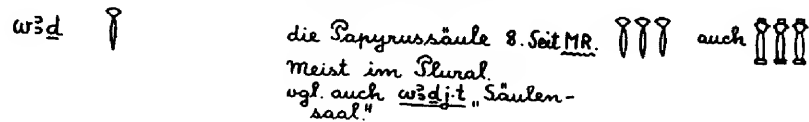 wꜣḏ 𓇅 die Papyrussäule 8. Seit MR. 𓇅𓇅𓇅 auch
Meist im Plural.
vgl. auch wꜣḏj·t „Säulen-
saal."